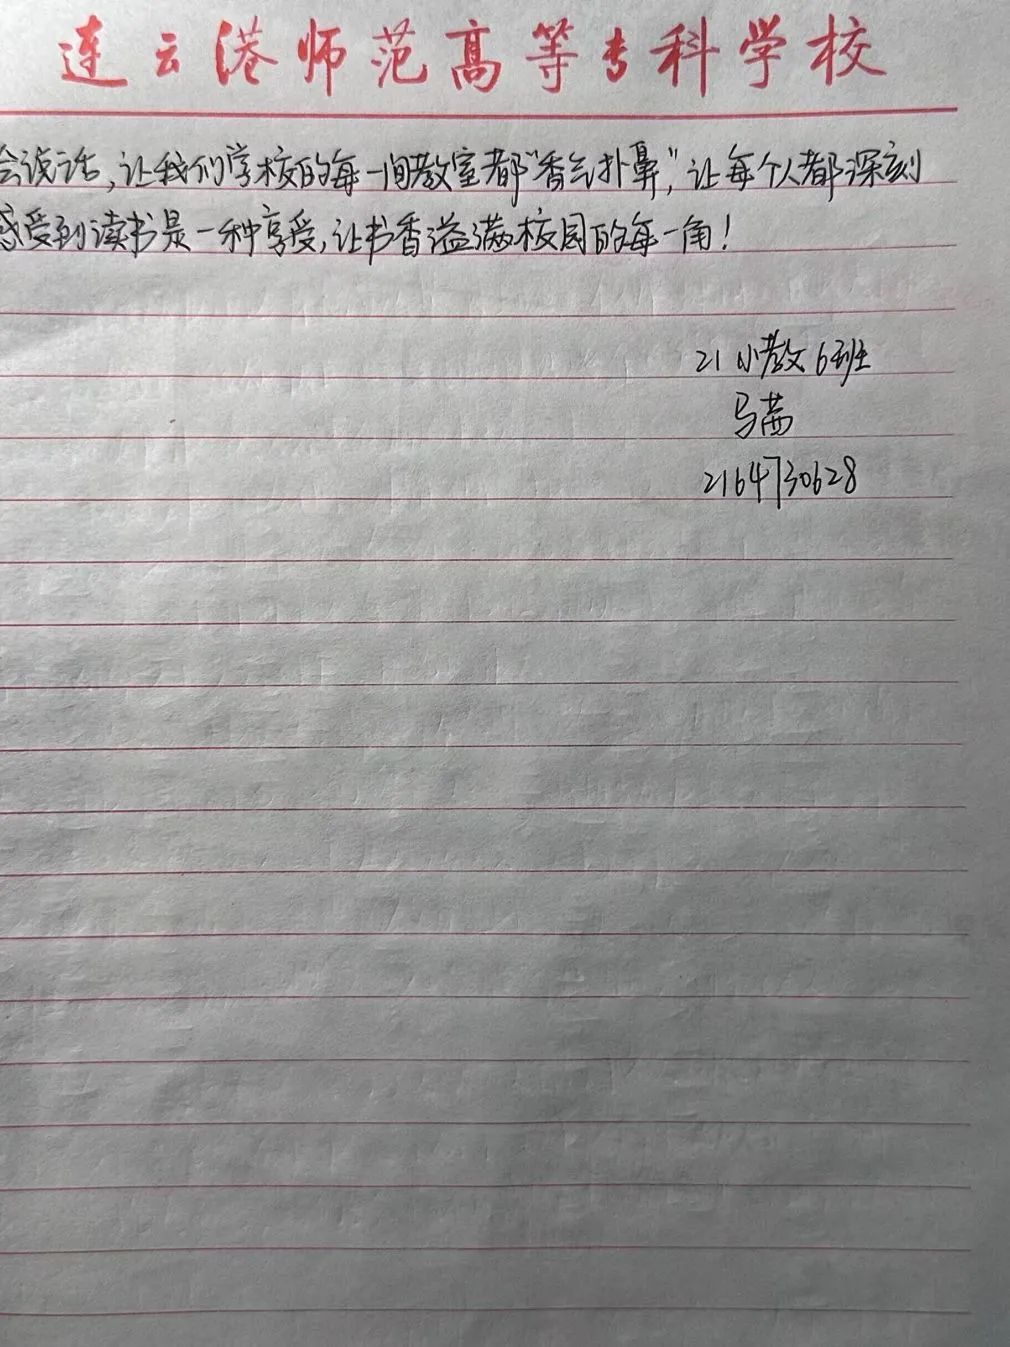 连云港师范高等专科学校
会说话,让我们学校的每一间教室都“香气扑鼻”,让每个人都深刻
感受到读书是一种享受,让书香溢满校园的每一角!
21小教6班
马茜
2164730628